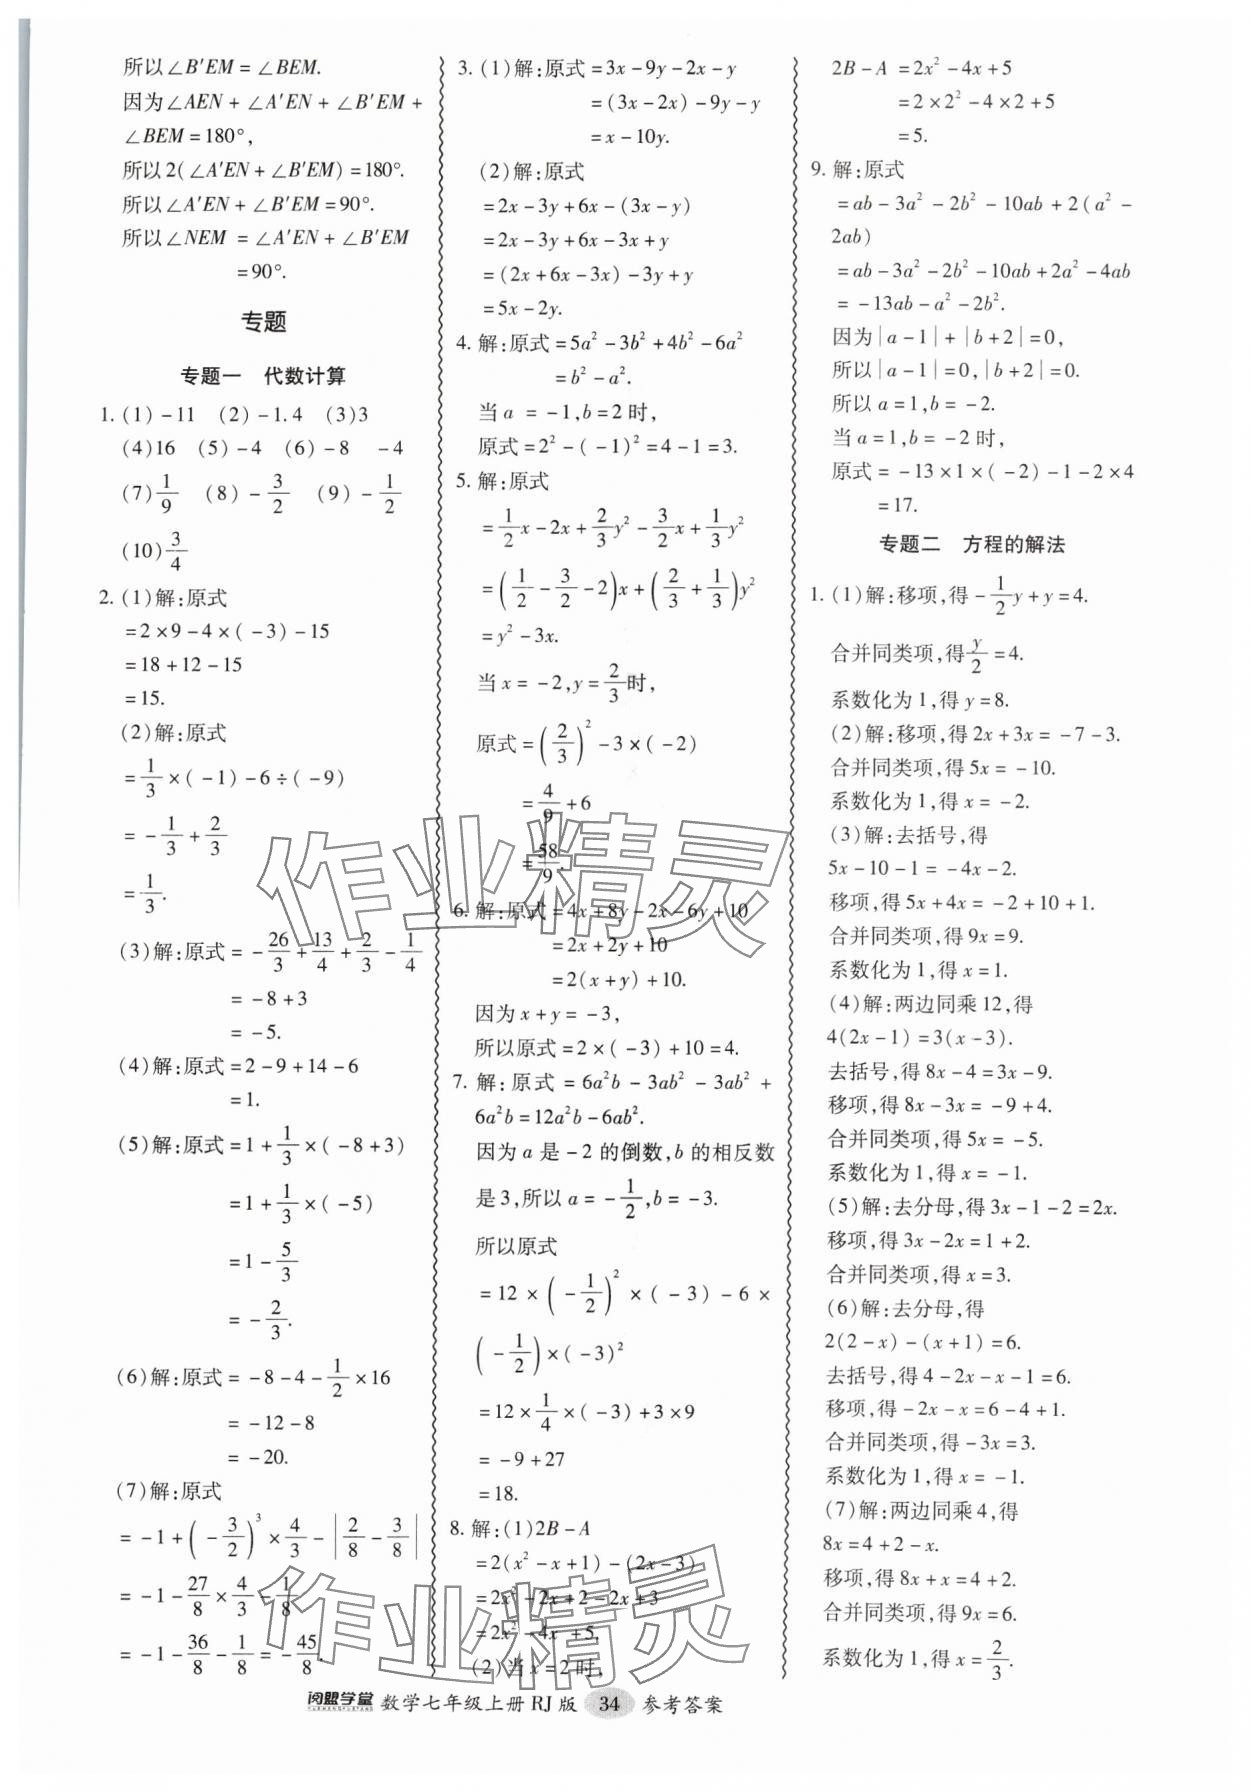 所以∠B′EM = ∠BEM.
因为∠AEN + ∠A′EN + ∠B′EM +
∠BEM = 180°,
所以 2(∠A′EN + ∠B′EM) = 180°.
所以∠A′EN + ∠B′EM = 90°.
所以∠NEM = ∠A′EN + ∠B′EM
= 90°.
专题
专题一 代数计算
1. (1) -11 (2) -1.4 (3)3
(4)16 (5) -4 (6) -8 -4
(7) 1/9 (8) -3/2 (9) -1/2
(10) 3/4
2. (1)解:原式
= 2×9 - 4×(-3) - 15
= 18 + 12 - 15
= 15.
(2)解:原式
= 1/3 ×(-1) - 6÷(-9)
= -1/3 + 2/3
= 1/3.
(3)解:原式 = -26/3 + 13/4 + 2/3 - 1/4
= -8 + 3
= -5.
(4)解:原式 = 2 - 9 + 14 - 6
= 1.
(5)解:原式 = 1 + 1/3 ×(-8 + 3)
= 1 + 1/3 ×(-5)
= 1 - 5/3
= -2/3.
(6)解:原式 = -8 - 4 - 1/2 ×16
= -12 - 8
= -20.
(7)解:原式
= -1 + (-3/2)³ × 4/3 - |2/8 - 3/8|
= -1 - 27/8 × 4/3 - 1/8
= -1 - 36/8 - 1/8 = -45/8.
3. (1)解:原式 = 3x - 9y - 2x - y
= (3x - 2x) - 9y - y
= x - 10y.
(2)解:原式
= 2x - 3y + 6x - (3x - y)
= 2x - 3y + 6x - 3x + y
= (2x + 6x - 3x) - 3y + y
= 5x - 2y.
4. 解:原式 = 5a² - 3b² + 4b² - 6a²
= b² - a².
当 a = -1, b = 2 时,
原式 = 2² - (-1)² = 4 - 1 = 3.
5. 解:原式
= 1/2 x - 2x + 2/3 y² - 3/2 x + 1/3 y²
= (1/2 - 3/2 - 2)x + (2/3 + 1/3)y²
= y² - 3x.
当 x = -2, y = 2/3 时,
原式 = (2/3)² - 3×(-2)
= 4/9 + 6
= 58/9.
6. 解:原式 = 4x + 8y - 2x - 6y + 10
= 2x + 2y + 10
= 2(x + y) + 10.
因为 x + y = -3,
所以原式 = 2×(-3) + 10 = 4.
7. 解:原式 = 6a²b - 3ab² - 3ab² +
6a²b = 12a²b - 6ab².
因为 a 是 -2 的倒数, b 的相反数
是 3, 所以 a = -1/2, b = -3.
所以原式
= 12 × (-1/2)² × (-3) - 6 ×
(-1/2) × (-3)²
= 12 × 1/4 × (-3) + 3×9
= -9 + 27
= 18.
8. 解:(1)2B - A
= 2(x² - x + 1) - (2x - 3)
= 2x² - 2x + 2 - 2x + 3
= 2x² - 4x + 5.
(2)当 x = 2 时,
2B - A = 2x² - 4x + 5
= 2×2² - 4×2 + 5
= 5.
9. 解:原式
= ab - 3a² - 2b² - 10ab + 2(a² -
2ab)
= ab - 3a² - 2b² - 10ab + 2a² - 4ab
= -13ab - a² - 2b².
因为 |a - 1| + |b + 2| = 0,
所以 |a - 1| = 0, |b + 2| = 0.
所以 a = 1, b = -2.
当 a = 1, b = -2 时,
原式 = -13×1×(-2) - 1 - 2×4
= 17.
专题二 方程的解法
1. (1)解:移项,得 -1/2 y + y = 4.
合并同类项,得 y/2 = 4.
系数化为 1,得 y = 8.
(2)解:移项,得 2x + 3x = -7 - 3.
合并同类项,得 5x = -10.
系数化为 1,得 x = -2.
(3)解:去括号,得
5x - 10 - 1 = -4x - 2.
移项,得 5x + 4x = -2 + 10 + 1.
合并同类项,得 9x = 9.
系数化为 1,得 x = 1.
(4)解:两边同乘 12,得
4(2x - 1) = 3(x - 3).
去括号,得 8x - 4 = 3x - 9.
移项,得 8x - 3x = -9 + 4.
合并同类项,得 5x = -5.
系数化为 1,得 x = -1.
(5)解:去分母,得 3x - 1 - 2 = 2x.
移项,得 3x - 2x = 1 + 2.
合并同类项,得 x = 3.
(6)解:去分母,得
2(2 - x) - (x + 1) = 6.
去括号,得 4 - 2x - x - 1 = 6.
移项,得 -2x - x = 6 - 4 + 1.
合并同类项,得 -3x = 3.
系数化为 1,得 x = -1.
(7)解:两边同乘 4,得
8x = 4 + 2 - x.
移项,得 8x + x = 4 + 2.
合并同类项,得 9x = 6.
系数化为 1,得 x = 2/3.
阅盟学堂 数学七年级上册 RJ 版 34 参考答案
作业精灵
作业精灵